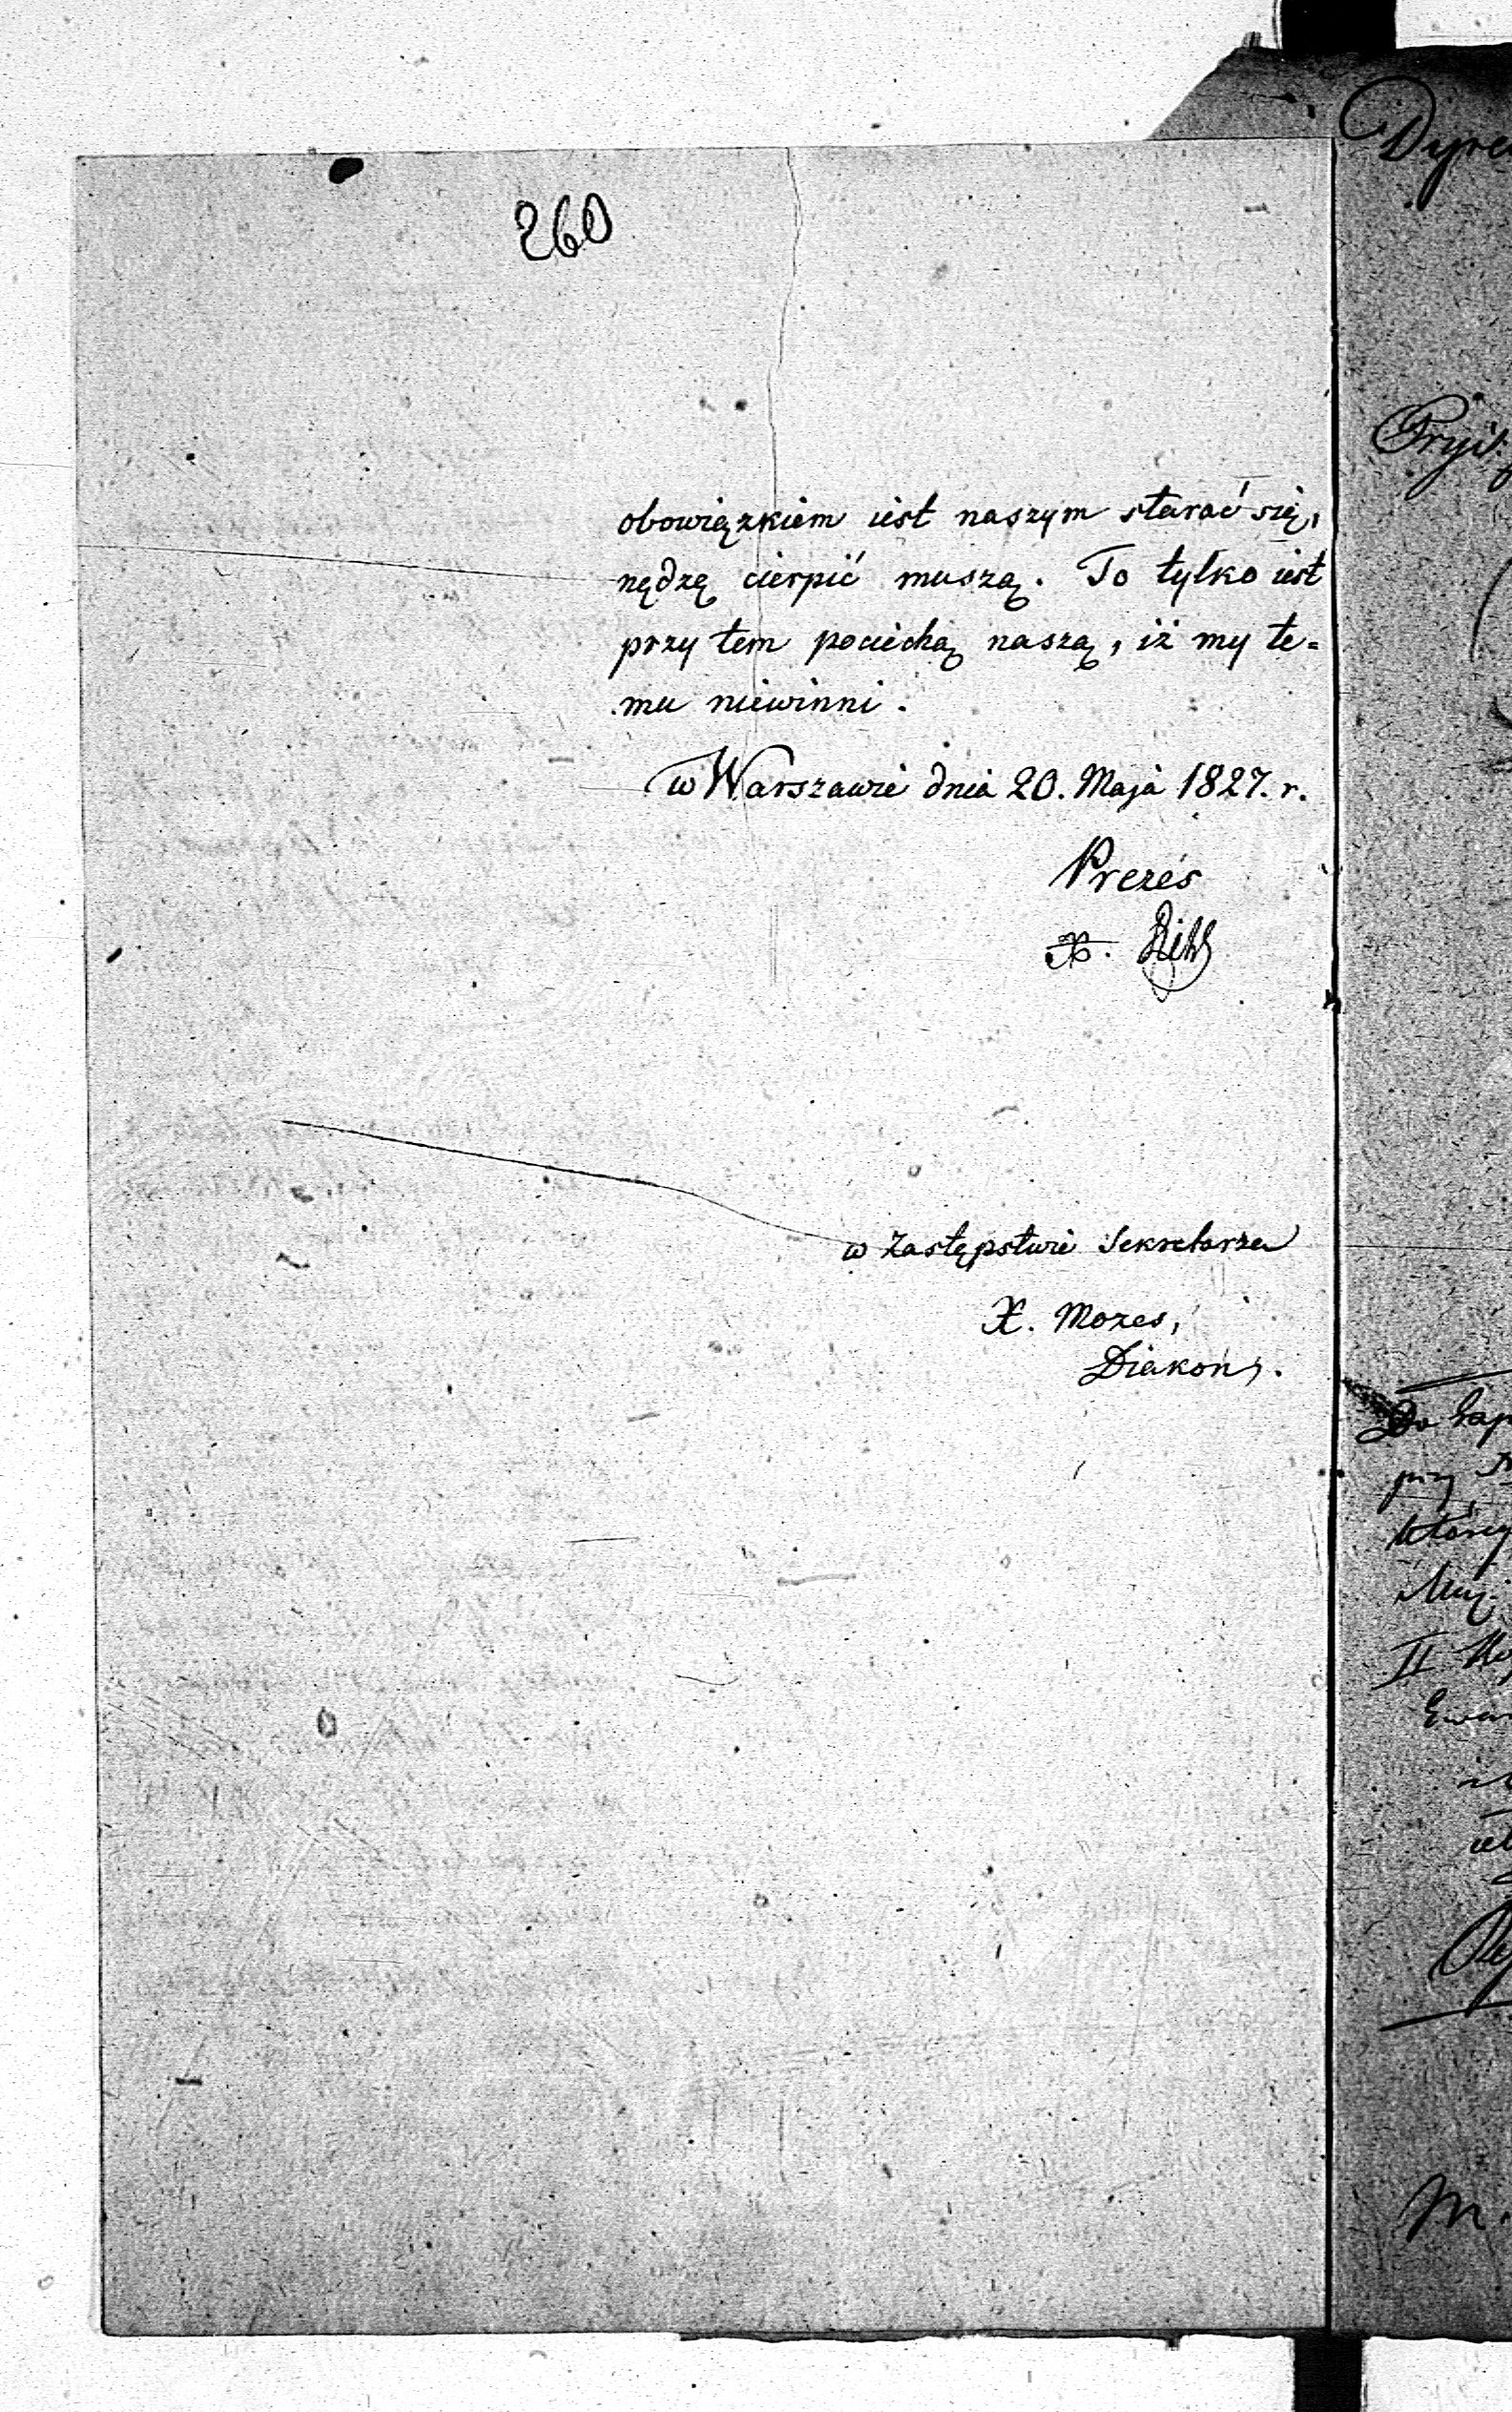 260
obowiązkiem iest naszym starać się,
nędzę cierpić muszą. To tylko iest
przy tem pociechą naszą, iż my te=
mu niewinni.
w Warszawie dnia 20. Maja 1827. r.
Prezes
X.
w Zastępstwie Sekretarza
X. Mozes,
Diakon.
Do
przy
II
M.